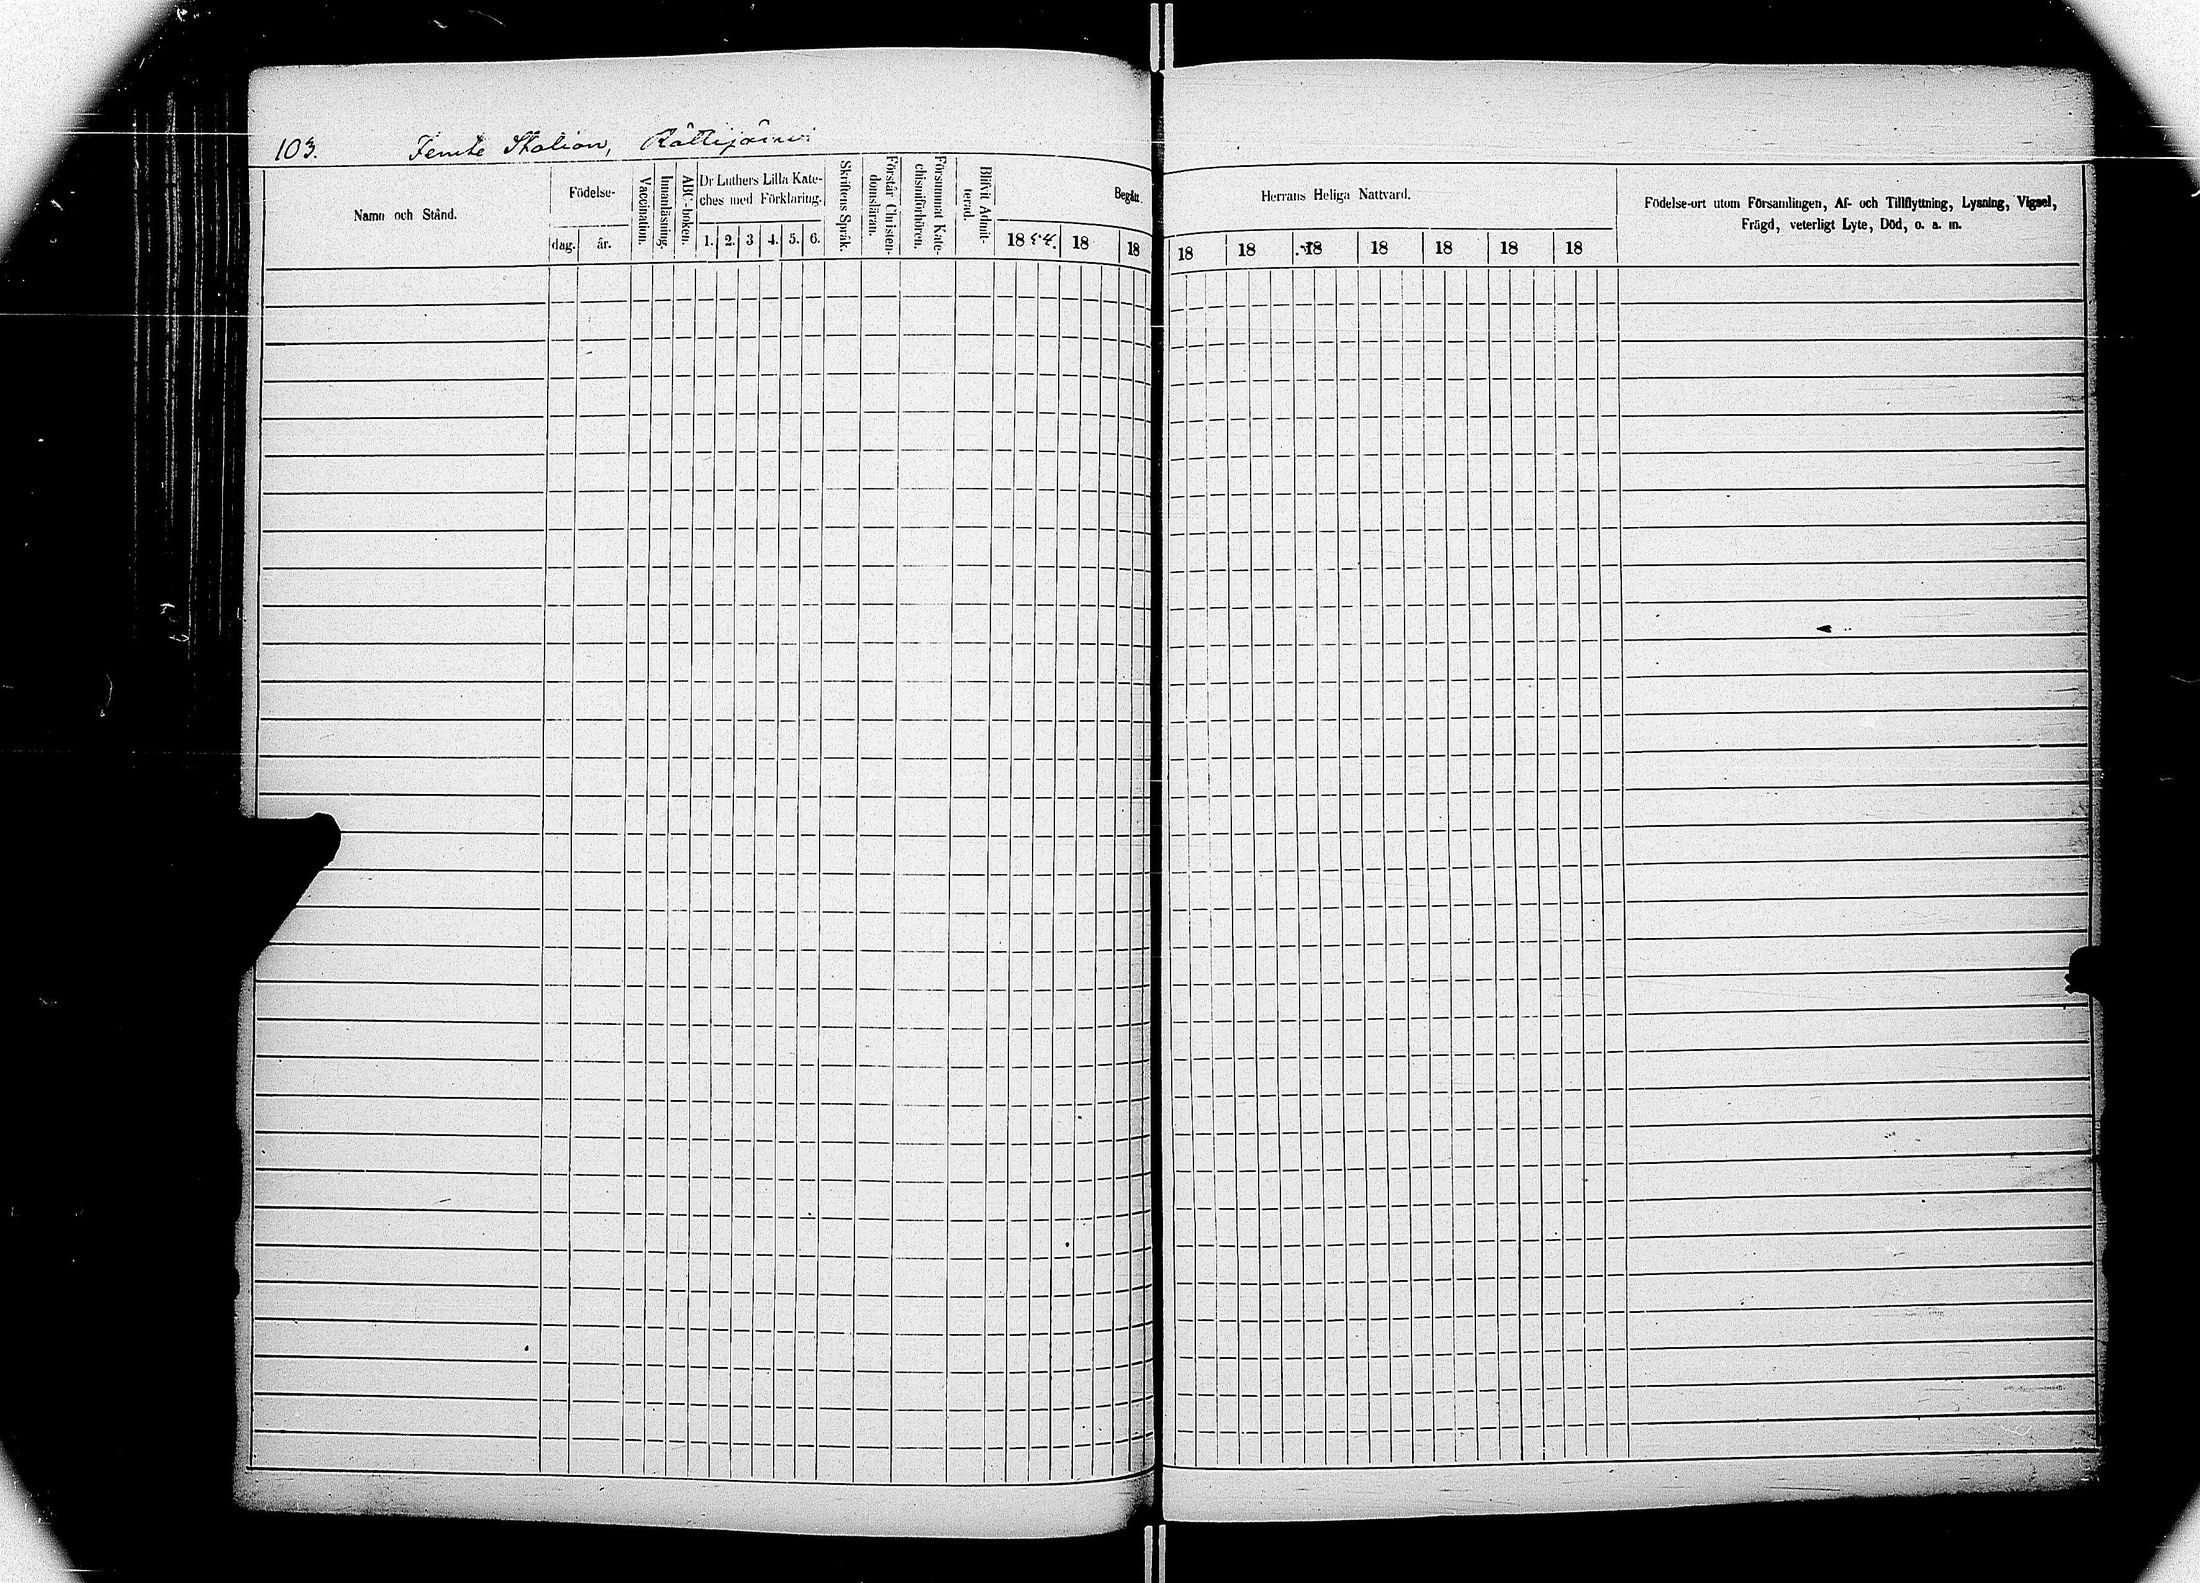 103. Femte Station, Rättijärwi
Namn och Stånd.
Födelse-
dag. år.
Vaccination.
Innanläsning.
ABC-boken.
Dr Luthers Lilla Kate-
ches med Förklaring.
1. 2. 3 4. 5. 6.
Skriftens Språk.
Förstår Christen-
domsläran.
Försummat Kate-
chismiförhören.
Blifvit Admit-
terad.
Begått
1854. 18 18
Herrans Heliga Nattvard.
18 18 18 18 18 18 18
Födelse-ort utom Församlingen, Af- och Tillflyttning, Lysning, Vigsel,
Frägd, veterligt Lyte, Död, o. a. m.